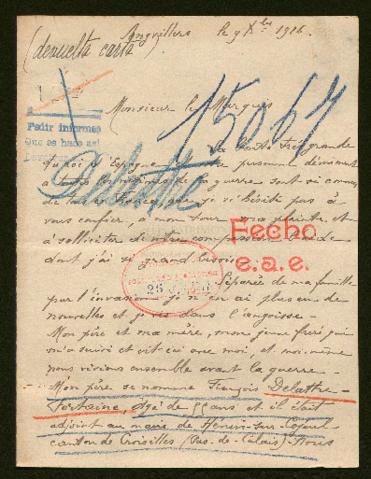 Angvillers le 9 Xbre 1916.
(devuelta carta)
Monsieur le Marquis
15067
Pedir informes
Que se haga así
Delattre
très grande
personne
de la guerre sont si connus
de je n'hésite pas à
vous confier, à mon tour, ma plainte et
à solliciter de votre l'aide
dont j'ai si grand besoin
Fecho
e.a.e.
Séparée de ma famille
par l'invasion je n'en ai plus eu de
nouvelles et je vis dans l'angoisse.
Mon père et ma mère, mon jeune frère qui
m'a suivi et vit ici avec moi, et moi-même
nous vivions ensemble avant la guerre.
Mon père se nomme François Delattre-
Fontaine, âgé de 55 ans et il était
adjoint au maire de Hénin-sur-Cojeul
canton de Croisilles (Pas-de-Calais). Nous